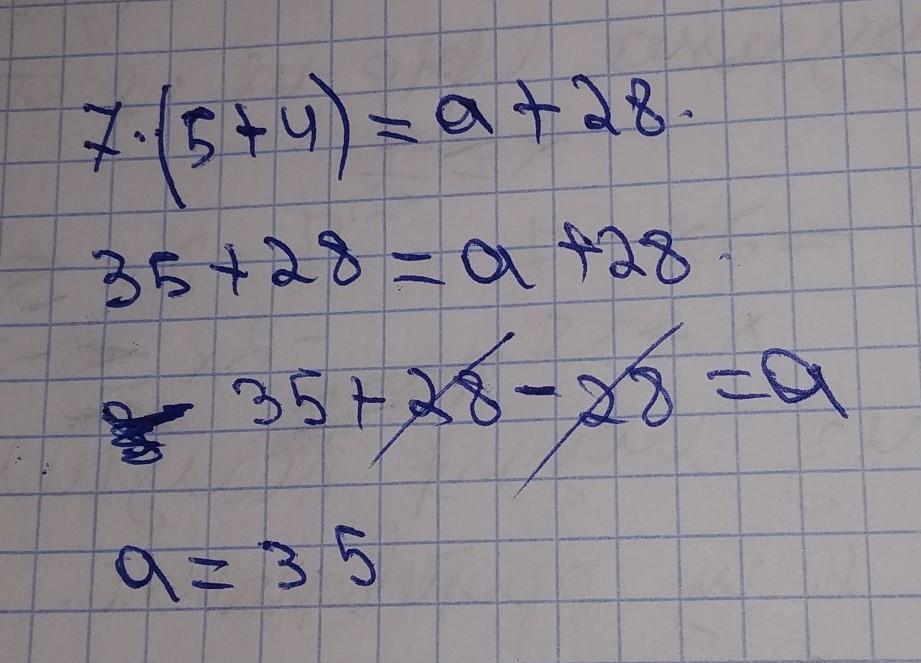 7·(5+4)=a+28.
35+28=a+28.
35+28-28=a
a=35